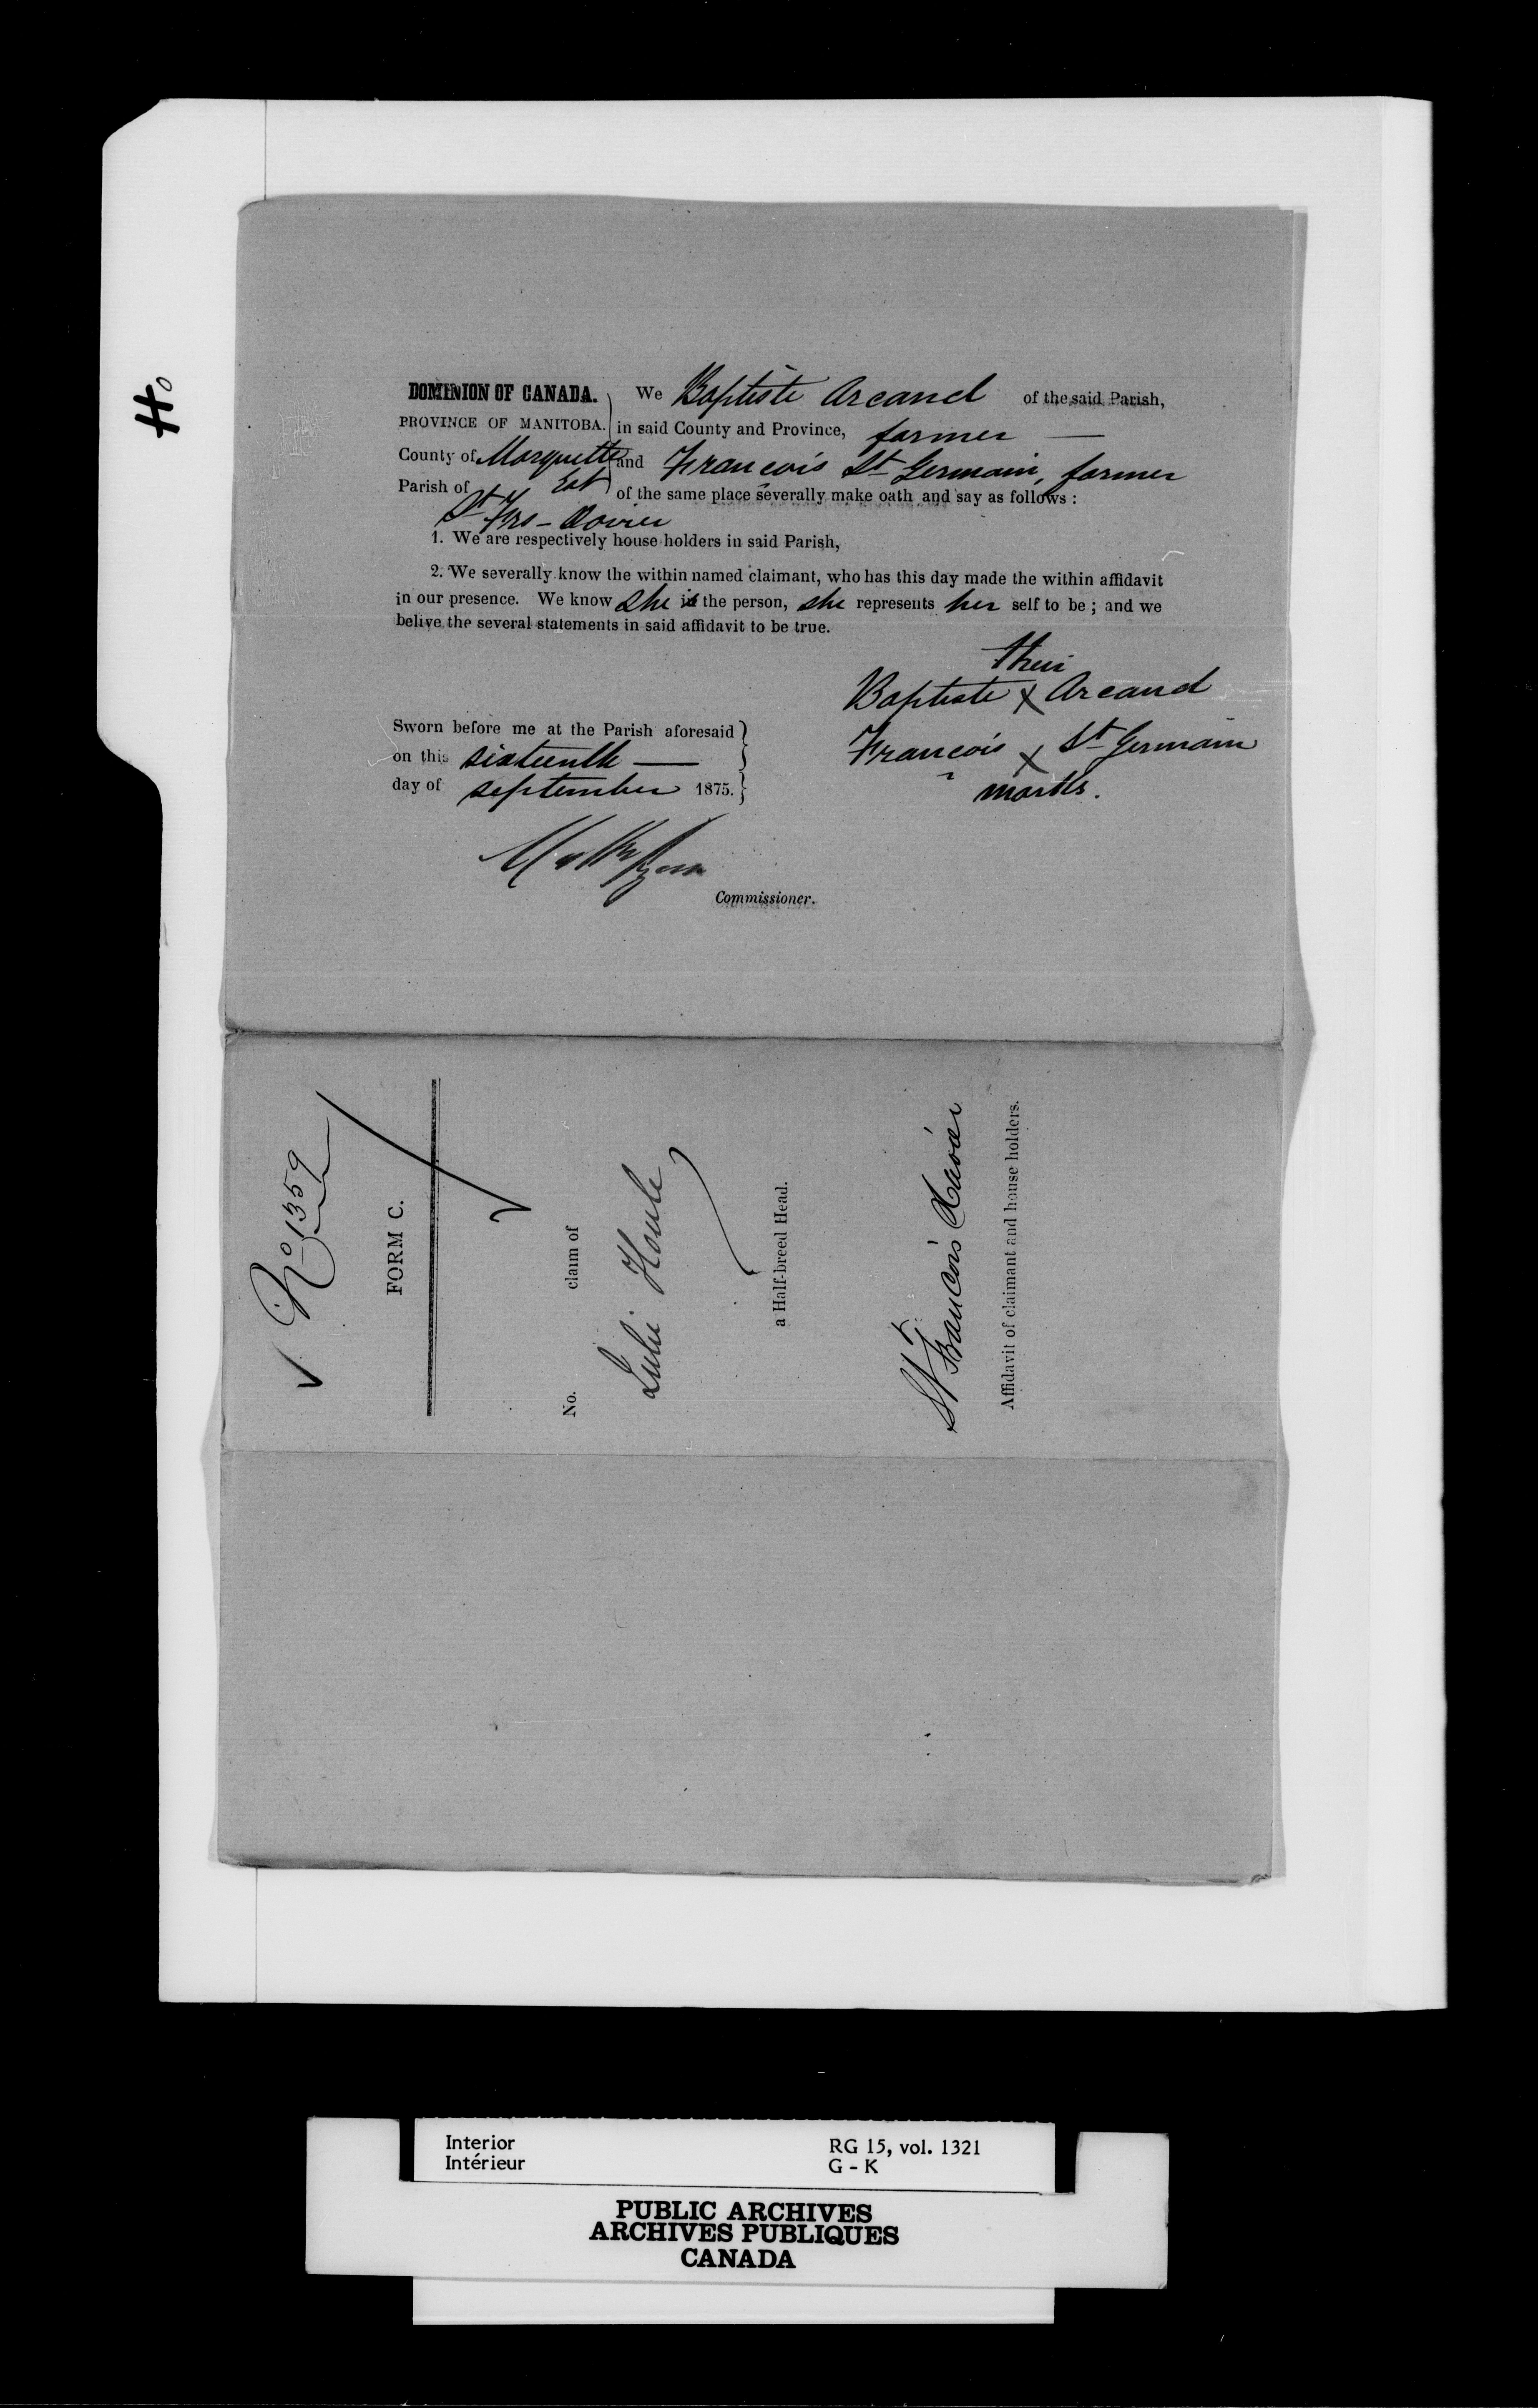 Ho
DOMINION OF CANADA.
PROVINCE OF MANITOBA.
County of Marquette
Est
Parish of
St Frs-Xavier
We Baptiste Arcand of the said Parish,
in said County and Province, farmer —
and François St Germain, farmer
of the same place severally make oath and say as follows :
1. We are respectively house holders in said Parish,
2. We severally know the within named claimant, who has this day made the within affidavit
in our presence. We know she is the person, she represents her self to be ; and we
belive the several statements in said affidavit to be true.
their
Baptiste x Arcand
François x St Germain
marks.
Sworn before me at the Parish aforesaid
on this sixteenth —
day of september 1875.
Commissioner.
No 1359
FORM C.
No. claim of
Julie Houle
a Half-breed Head.
St François Xavier
Affidavit of claimant and house holders.
Interior
Intérieur
RG 15, vol. 1321
G - K
PUBLIC ARCHIVES
ARCHIVES PUBLIQUES
CANADA